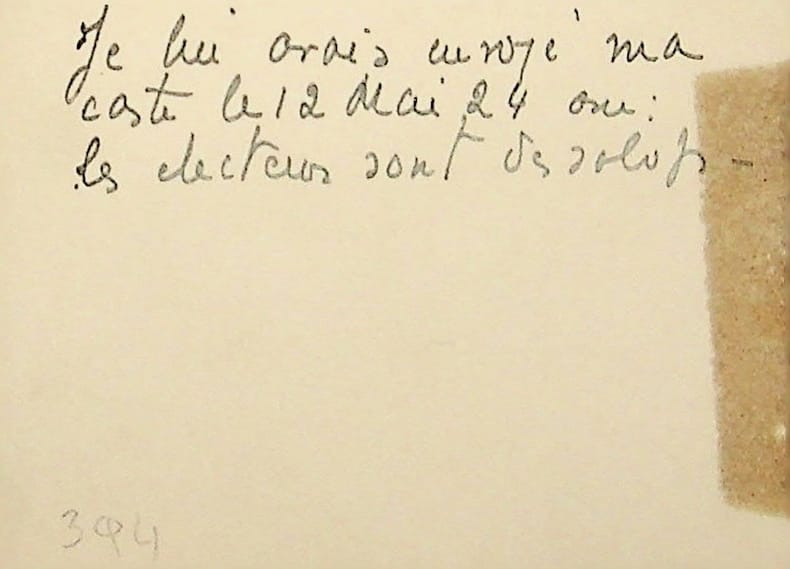 Je lui avais envoyé ma
carte le 12 Mai 24 avec:
les electeurs sont des salops -
394